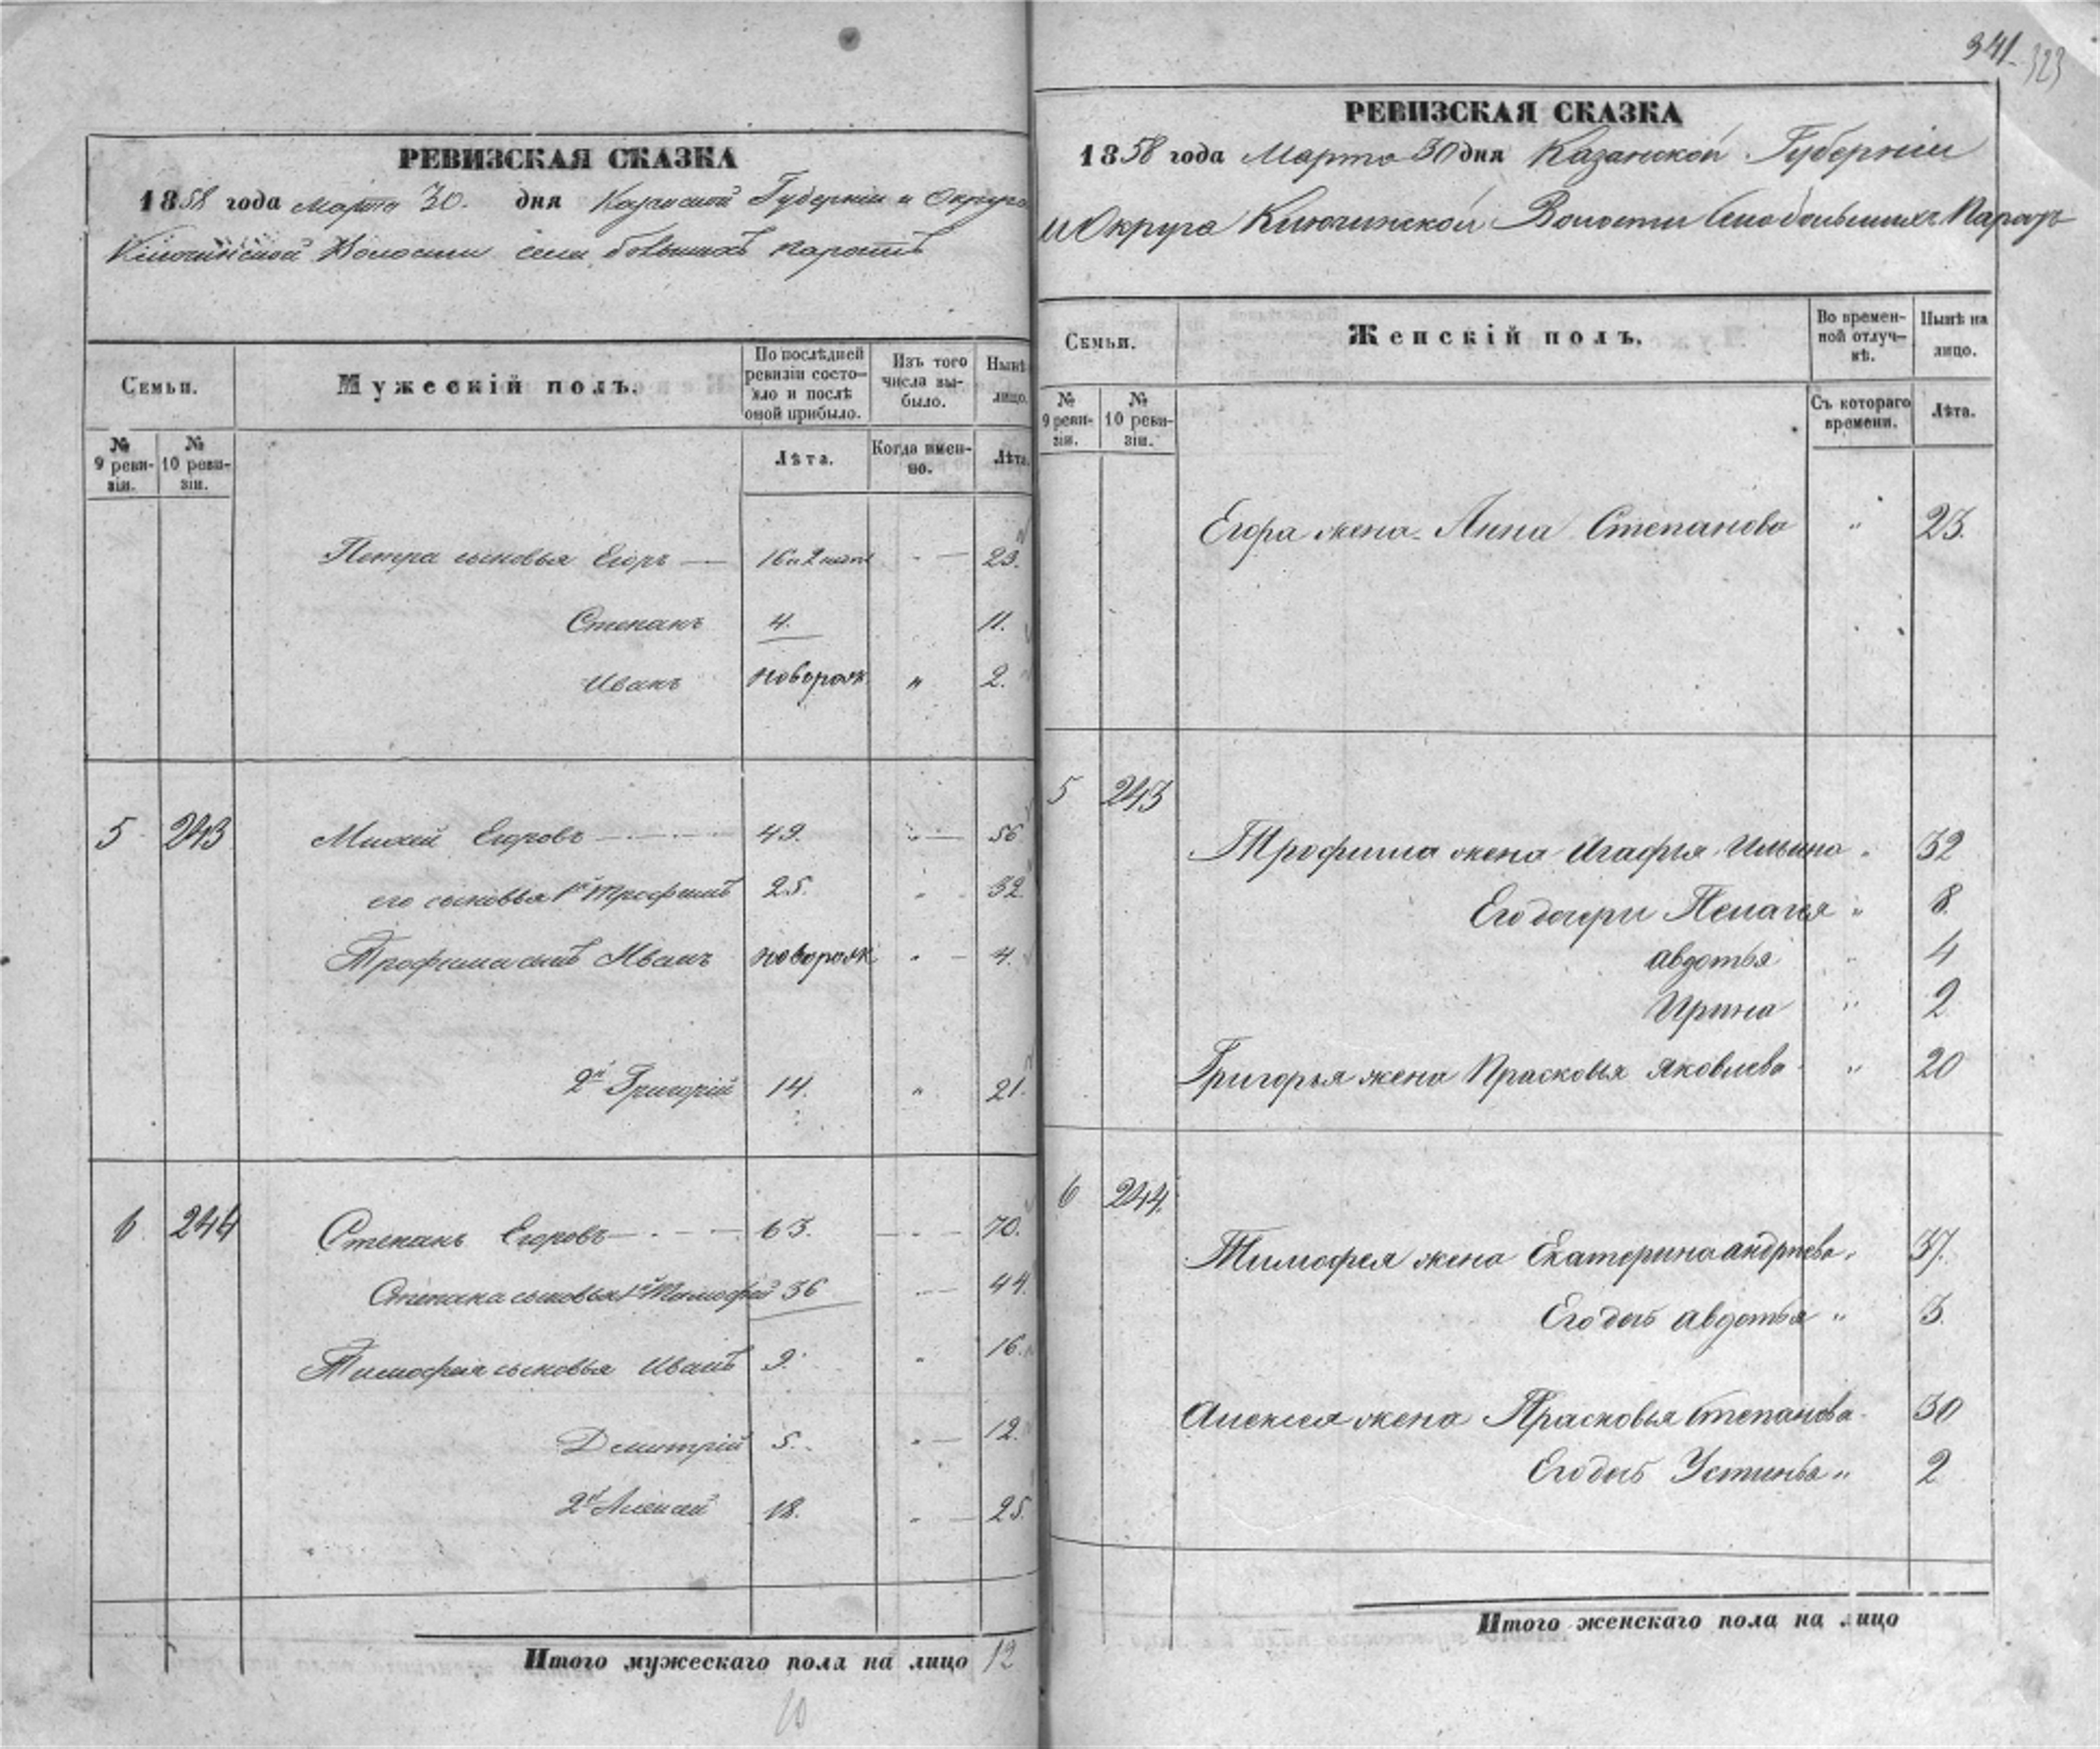 РЕВИЗСКАЯ СКАЗКА
1858 года Марта 30. дня Казанской Губерніи и Округа
Ключинской Волости села большихъ
Семьи.
Мужескій полъ.
По послѣдней ревизіи состояло и послѣ оной прибыло.
Изъ того числа выбыло.
Нынѣ лицо.
№ 9 ревизіи.
№ 10 ревизіи.
Лѣта.
Когда именно.
Лѣта.
Петра сыновья Егоръ — 16 и 2 23.
Степанъ 4. 11.
Иванъ новорож „ 2.
5 243 Егоровъ 49. „ — 56
его сыновья 1й Трофимъ 25. „ 32.
Трофима сынъ Иванъ новорож „ — 4.
2й Григорій 14. „ 21.
6 244 Степанъ Егоровъ 63. 70.
Степана сыновья 1й Тимофей 36 44.
Тимофея сыновья Иванъ 9. „ 16.
Дмитрій 5. „ — 12.
2й Алексей 18. „ — 25.
Итого мужескаго пола на лицо 12
10
341. 323
РЕВИЗСКАЯ СКАЗКА
1858 года Марта 30 дня Казанской Губерніи
и Округа Ключинской Волости Села большихъ
Семьи.
Женскій полъ.
Во временной отлучкѣ.
Нынѣ на лицо.
№ 9 ревизіи.
№ 10 ревизіи.
Съ котораго времени.
Лѣта.
Егора жена Анна Степанова „ 23.
5 243
Трофима жена Агафья Ильина „ 32
Его дочери Пелагея „ 8.
авдотья „ 4
Ирина „ 2
Григорья жена Прасковья Яковлева „ 20
6 244.
Тимофея жена Екатерина андреева „ 37.
Его дочь авдотья „ 3.
Алексея жена Прасковья Степанова 30
Его дочь Устинья „ 2
Итого женскаго пола на лицо